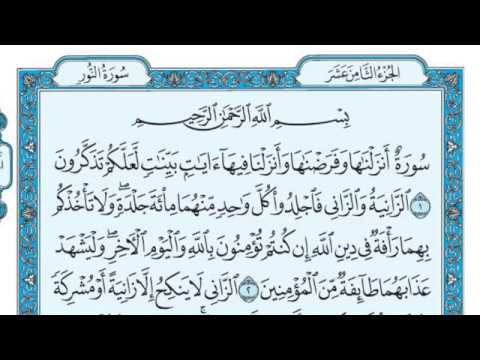 الجزء الثامن عشر
سورة النور
بِسْمِ اللَّهِ الرَّحْمَٰنِ الرَّحِيمِ
سُورَةٌ أَنزَلْنَاهَا وَفَرَضْنَاهَا وَأَنزَلْنَا فِيهَا ءَايَاتٍ بَيِّنَاتٍ لَّعَلَّكُمْ تَذَكَّرُونَ
١ الزَّانِيَةُ وَالزَّانِي فَاجْلِدُوا كُلَّ وَاحِدٍ مِّنْهُمَا مِائَةَ جَلْدَةٍ ۖ وَلَا تَأْخُذْكُم
بِهِمَا رَأْفَةٌ فِي دِينِ اللَّهِ إِن كُنتُمْ تُؤْمِنُونَ بِاللَّهِ وَالْيَوْمِ الْآخِرِ ۖ وَلْيَشْهَدْ
عَذَابَهُمَا طَائِفَةٌ مِّنَ الْمُؤْمِنِينَ ٢ الزَّانِي لَا يَنكِحُ إِلَّا زَانِيَةً أَوْ مُشْرِكَةً